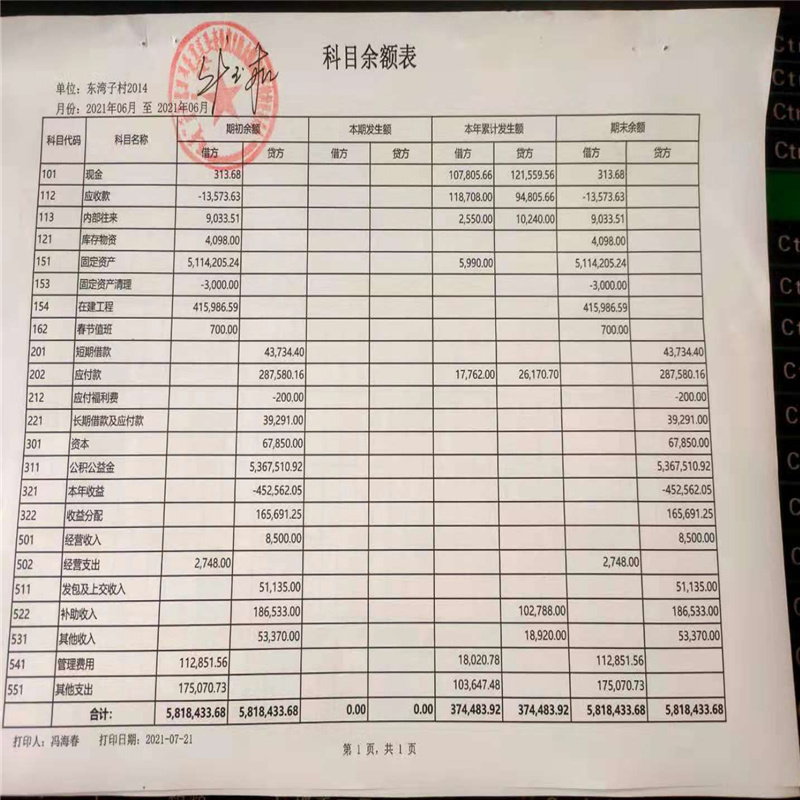 科目余额表
单位：东湾子村2014
月份：2021年06月 至 2021年06月
科目代码 科目名称 期初余额 本期发生额 本年累计发生额 期末余额
借方 贷方 借方 贷方 借方 贷方 借方 贷方
101 现金 313.68 107,805.66 121,559.56 313.68
112 应收款 -13,573.63 118,708.00 94,805.66 -13,573.63
113 内部往来 9,033.51 2,550.00 10,240.00 9,033.51
121 库存物资 4,098.00 4,098.00
151 固定资产 5,114,205.24 5,990.00 5,114,205.24
153 固定资产清理 -3,000.00 -3,000.00
154 在建工程 415,986.59 415,986.59
162 春节值班 700.00 700.00
201 短期借款 43,734.40 43,734.40
202 应付款 287,580.16 17,762.00 26,170.70 287,580.16
212 应付福利费 -200.00 -200.00
221 长期借款及应付款 39,291.00 39,291.00
301 资本 67,850.00 67,850.00
311 公积公益金 5,367,510.92 5,367,510.92
321 本年收益 -452,562.05 -452,562.05
322 收益分配 165,691.25 165,691.25
501 经营收入 8,500.00 8,500.00
502 经营支出 2,748.00 2,748.00
511 发包及上交收入 51,135.00 51,135.00
522 补助收入 186,533.00 102,788.00 186,533.00
531 其他收入 53,370.00 18,920.00 53,370.00
541 管理费用 112,851.56 18,020.78 112,851.56
551 其他支出 175,070.73 103,647.48 175,070.73
合计： 5,818,433.68 5,818,433.68 0.00 0.00 374,483.92 374,483.92 5,818,433.68 5,818,433.68
打印人：冯海春 打印日期：2021-07-21
第 1 页，共 1 页